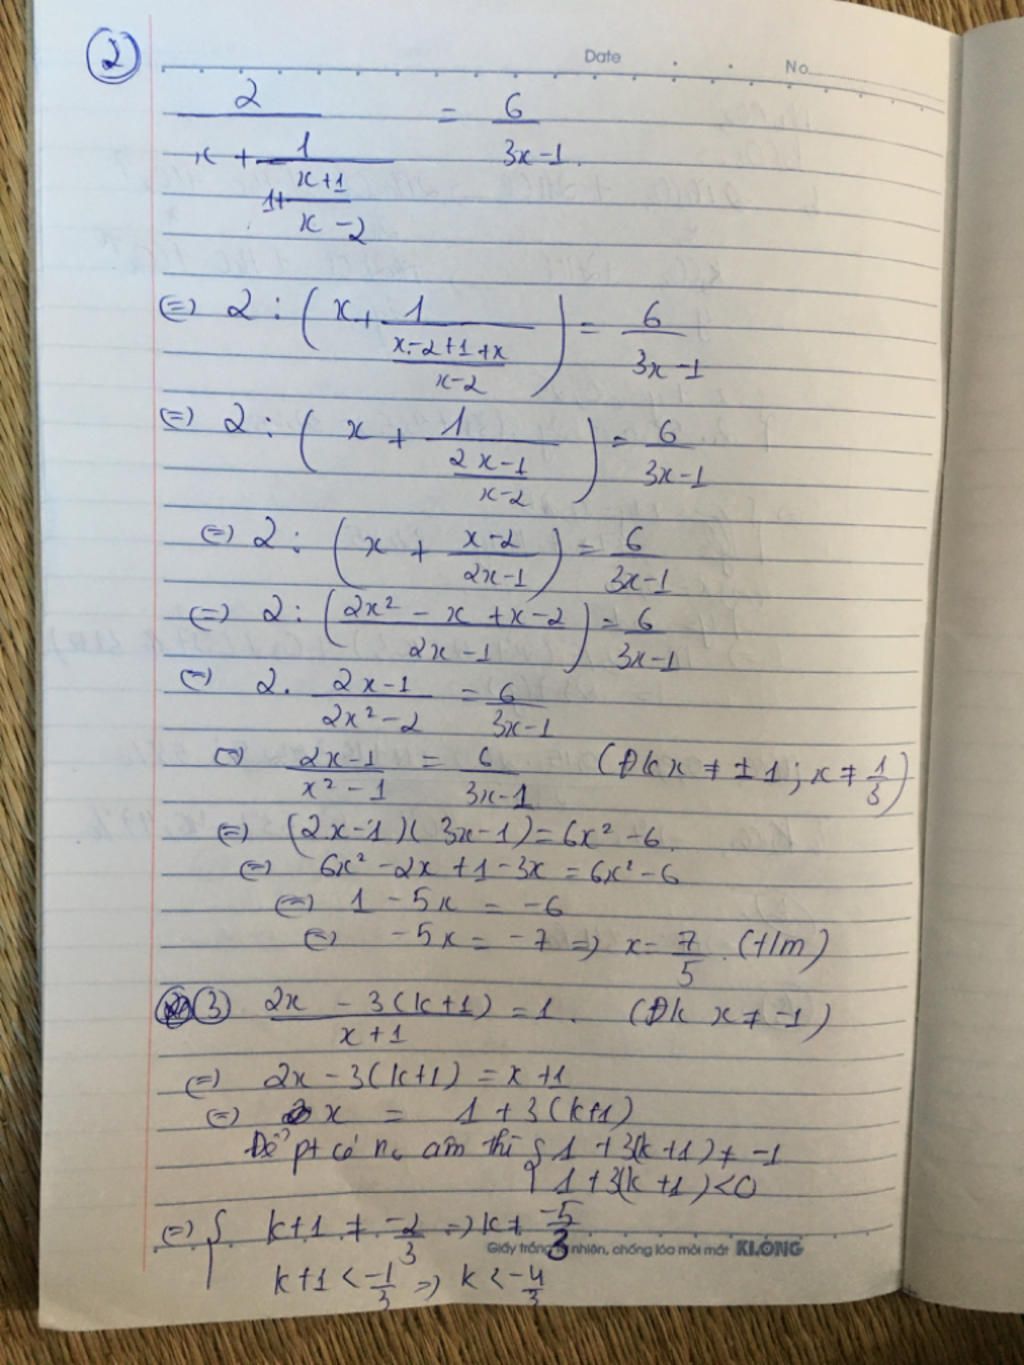 Date No
②
2/(x + 1/(1+(x+1)/(x-2))) = 6/(3x-1).
(=) 2 : (x + 1/((x-2+1+x)/(x-2))) = 6/(3x-1)
(=) 2 : (x + 1/((2x-1)/(x-2))) = 6/(3x-1)
(=) 2 : (x + (x-2)/(2x-1)) = 6/(3x-1)
(=) 2 : ((2x² - x + x - 2)/(2x-1)) = 6/(3x-1)
(=) 2 . (2x-1)/(2x²-2) = 6/(3x-1)
(=) (2x-1)/(x²-1) = 6/(3x-1) (Đk x ≠ ±1; x ≠ 1/3)
(=) (2x-1)(3x-1) = 6x² - 6.
(=) 6x² - 2x + 1 - 3x = 6x² - 6
(=) 1 - 5x = -6
(=) -5x = -7 => x = 7/5. (t/m)
③ (2x - 3(k+1))/(x+1) = 1. (Đk x ≠ -1)
(=) 2x - 3(k+1) = x + 1
(=) x = 1 + 3(k+1)
Để pt có no âm thì { 1 + 3(k+1) ≠ -1
1 + 3(k+1) < 0
(=) { k+1 ≠ -2/3 => k ≠ -5/3
Giấy trắng tự nhiên, chống lóa mỏi mắt KLONG
k+1 < -1/3 => k < -4/3